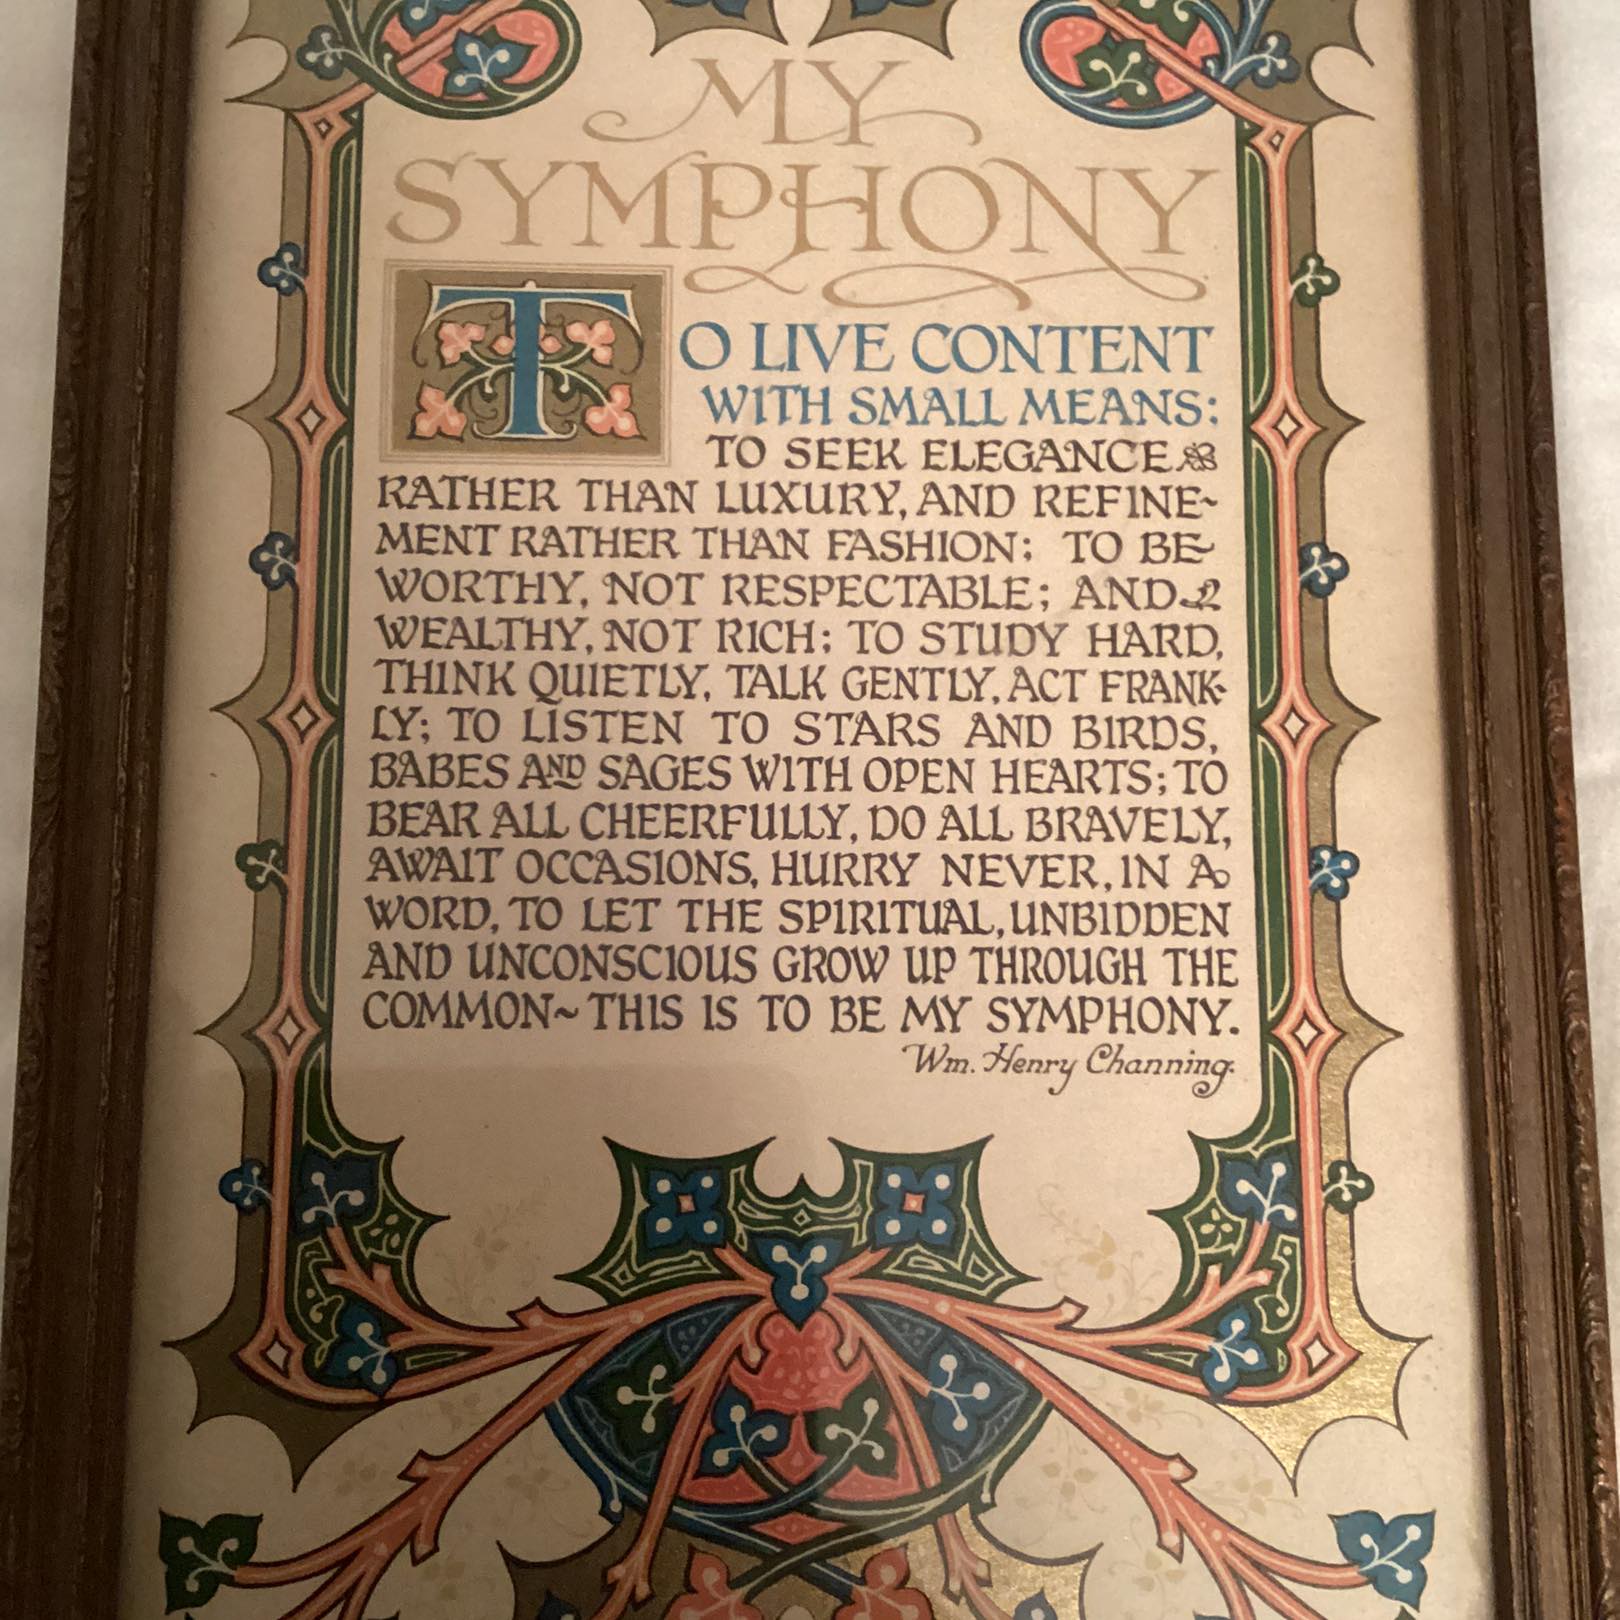 MY
SYMPHONY
TO LIVE CONTENT
WITH SMALL MEANS:
TO SEEK ELEGANCE
RATHER THAN LUXURY, AND REFINE~
MENT RATHER THAN FASHION; TO BE
WORTHY, NOT RESPECTABLE; AND
WEALTHY, NOT RICH; TO STUDY HARD,
THINK QUIETLY, TALK GENTLY, ACT FRANK-
LY; TO LISTEN TO STARS AND BIRDS,
BABES AND SAGES WITH OPEN HEARTS; TO
BEAR ALL CHEERFULLY, DO ALL BRAVELY,
AWAIT OCCASIONS, HURRY NEVER, IN A
WORD, TO LET THE SPIRITUAL, UNBIDDEN
AND UNCONSCIOUS GROW UP THROUGH THE
COMMON~THIS IS TO BE MY SYMPHONY.
Wm. Henry Channing.